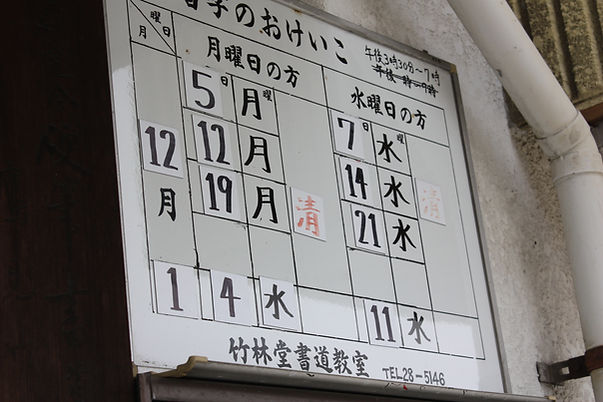 習字のおけいこ
午後3時30分～7時
午後 時～9時
曜日
月
月曜日の方
水曜日の方
5日 月曜
7日 水曜
12月
12 月
14 水
19 月 清
21 水 清
1 4 水
11 水
竹林堂書道教室 TEL28-5146